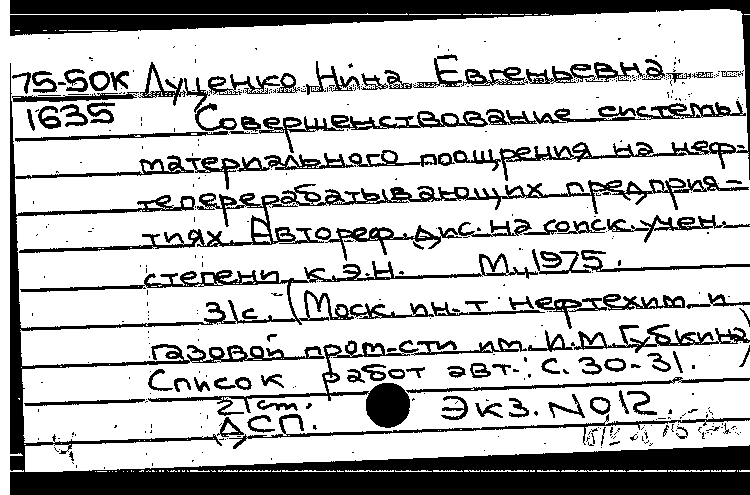 75-50К Луценко, Нина Евгеньевна.
1635 Совершенствование системы
материального поощрения на неф-
теперерабатывающих предприя-
тиях. Автореф. дис. на соиск. учен.
степени к.э.н. М., 1975.
31с. (Моск. ин-т нефтехим. и
газовой пром-сти им. И.М. Губкина)
Список работ авт.: с. 30-31.
21 см.
ДСП. Экз. N012